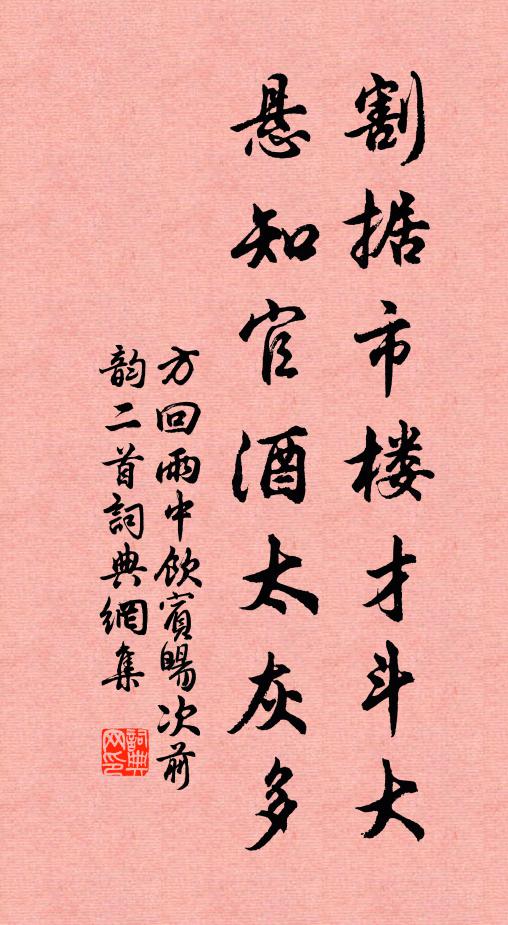 割据市楼才斗大
悬知官酒太灰多
方回雨中飲賓暘次前
韵二首詞典網集
詞典网印